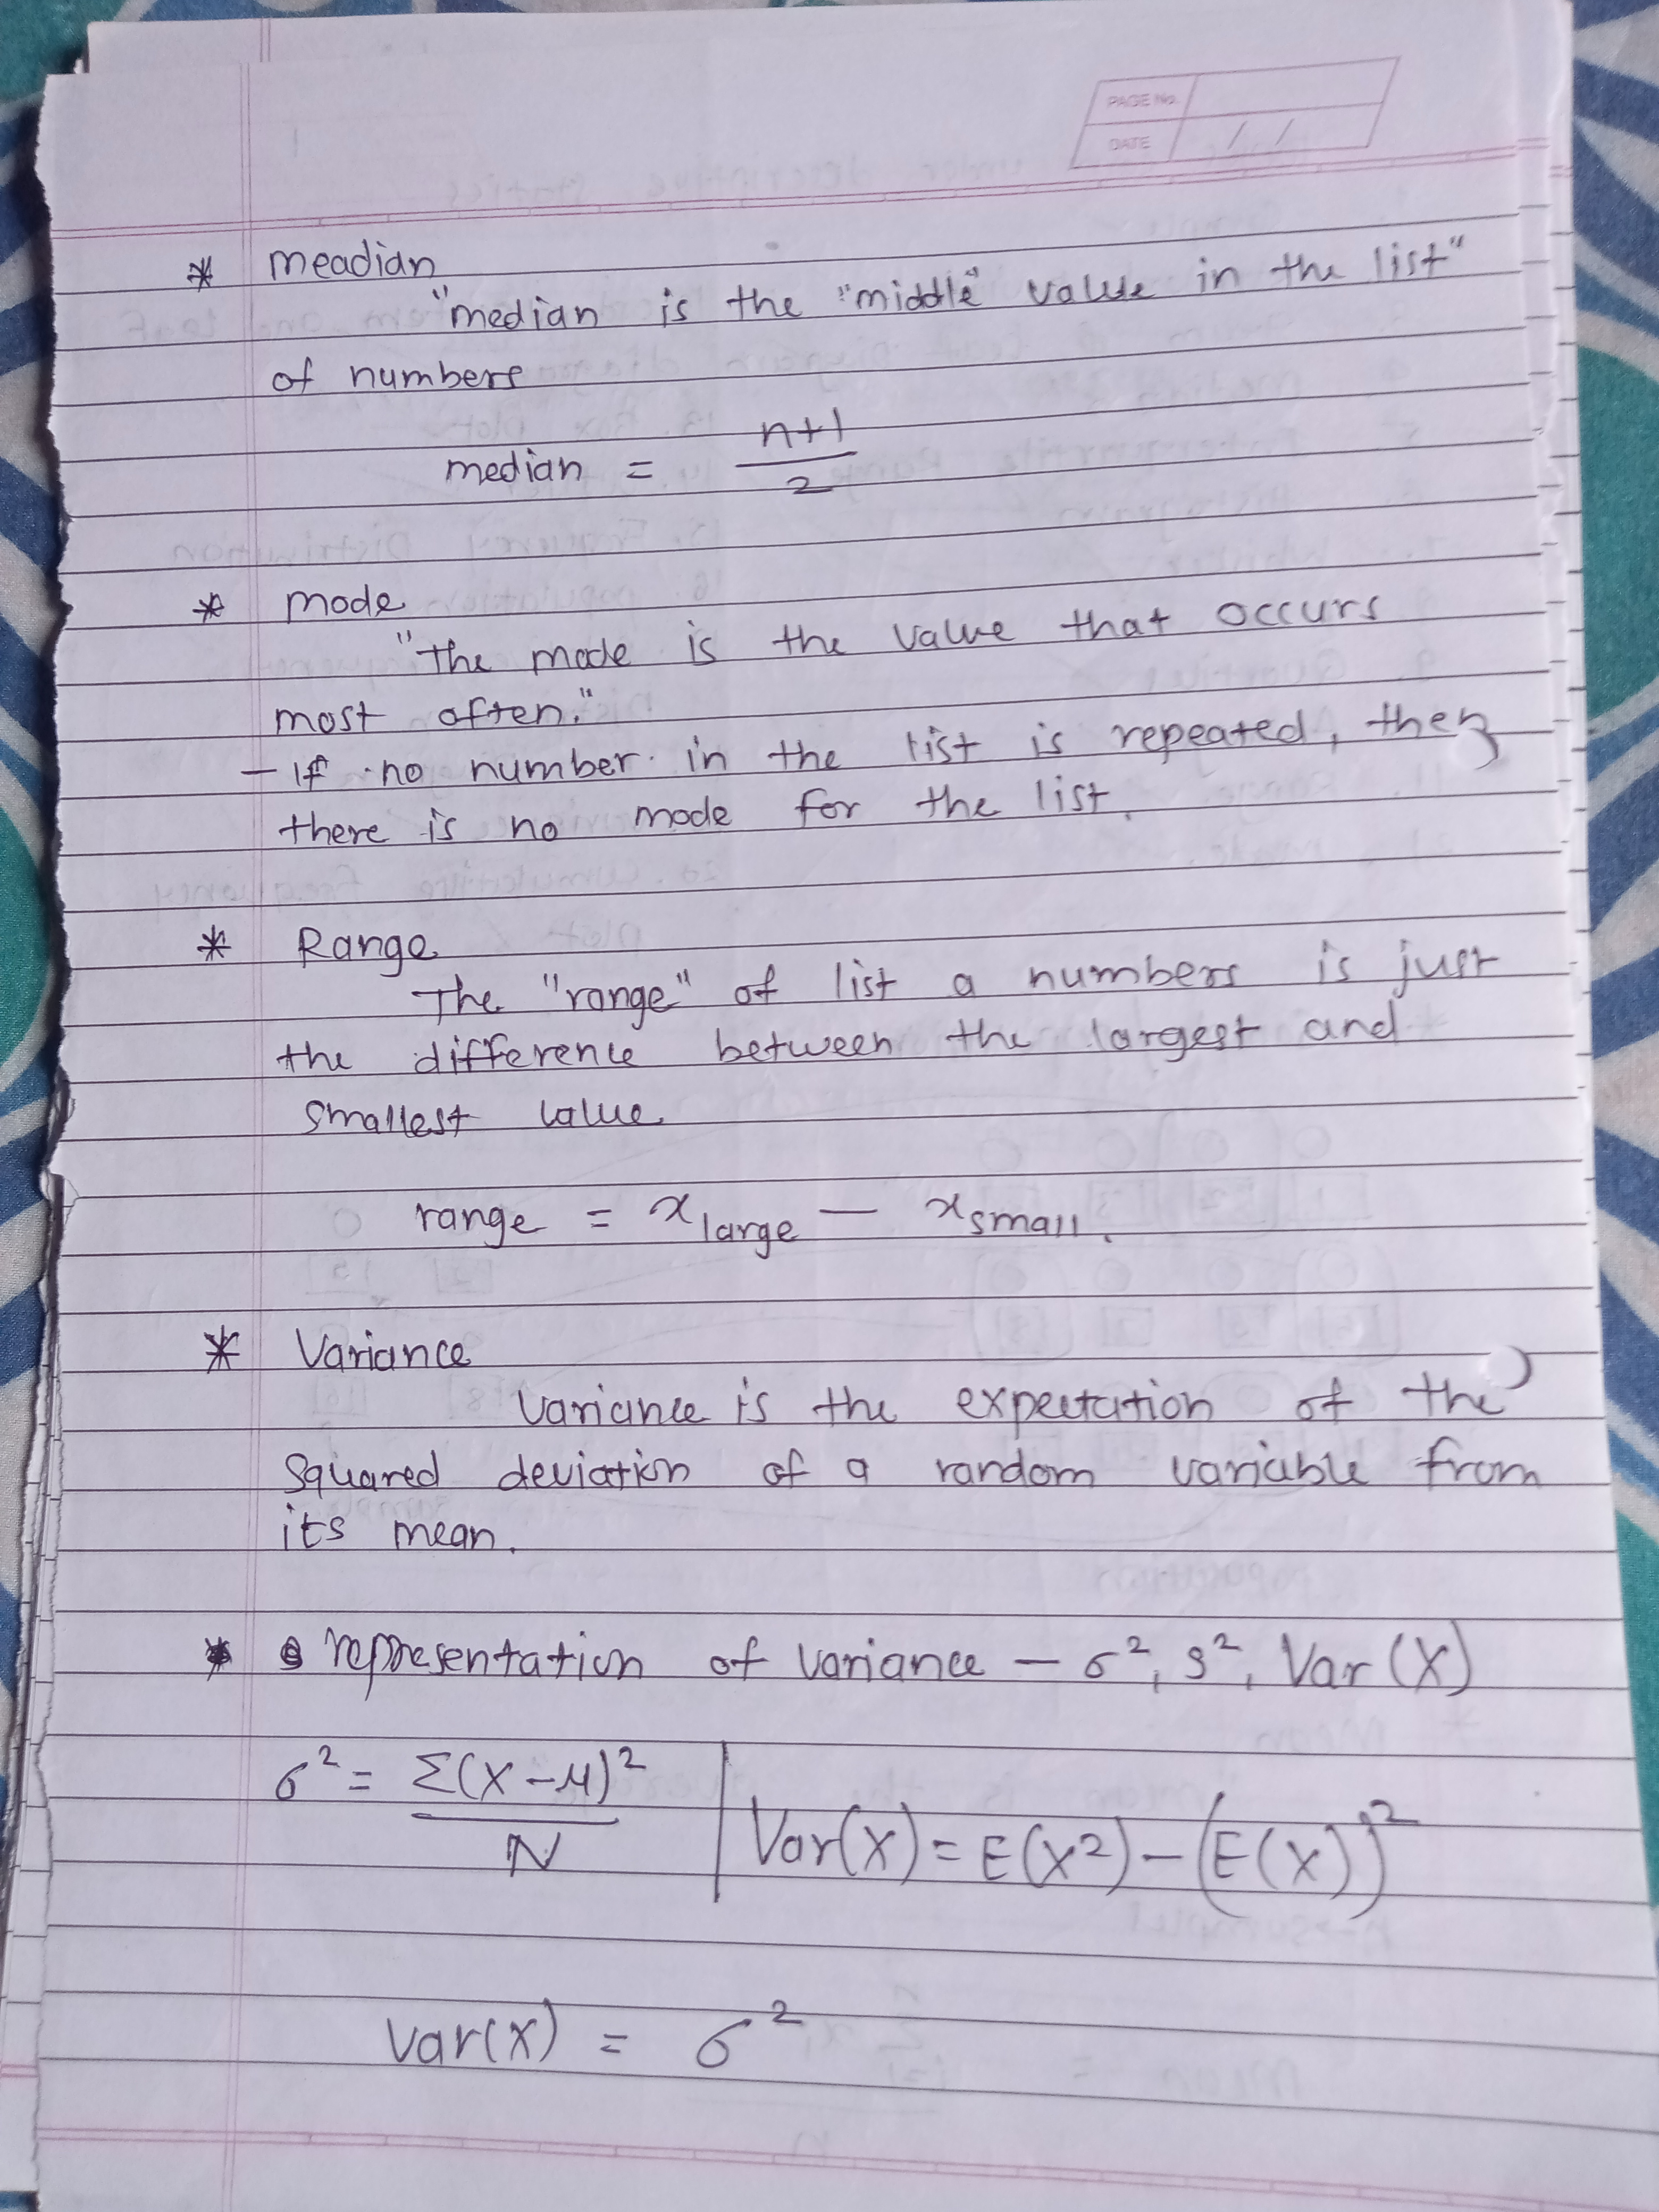 PAGE No.
DATE / /
* meadian
"median is the "middle" value in the list"
of numbers
median = n+1
2
* mode
"The mode is the value that occurs
most often."
— If no number in the list is repeated, then
there is no mode for the list.
* Range
The "range" of list a numbers is just
the difference between the largest and
smallest value
range = x large — x small.
* Variance
Variance is the expectation of the
squared deviation of a random variable from
its mean.
* representation of variance — σ², s², Var (X)
σ² = Σ(X-μ)²
N
Var(X) = E(X²) - (E(X))²
Var(X) = σ²